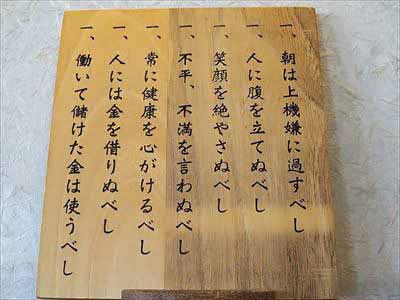 一、朝は上機嫌に過すべし
一、人に腹を立てぬべし
一、笑顔を絶やさぬべし
一、不平、不満を言わぬべし
一、常に健康を心がけるべし
一、人には金を借りぬべし
一、働いて儲けた金は使うべし